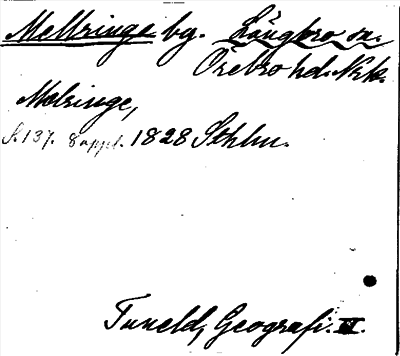 Mellringe bg. Längbro sn.
Örebro hd. Nrk.
Melringe,
S. 137. 8 uppl. 1828 Sthlm.
Tuneld, Geografi. II.